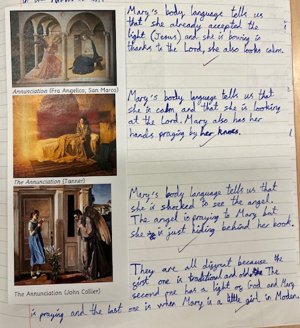 Mary's body language tells us
that she already accepted the
light (Jesus) and she is bowing in
thanks to the Lord, she also looks calm.
Annunciation (Fra Angelico, San Marco)
Mary's body language tells us that
she is calm and that she is looking
at the Lord. Mary also has her
hands praying by her knees.
The Annunciation (Tanner)
Mary's body language tells us that
she is shocked to see the angel.
The angel is praying to Mary but
she is just hiding behind her book.
The Annunciation (John Collier)
They are all diffrent because the
first one is traditional and old. The
second one has a light of God and Mary
is praying and the last one is when Mary is a little girl in Modern